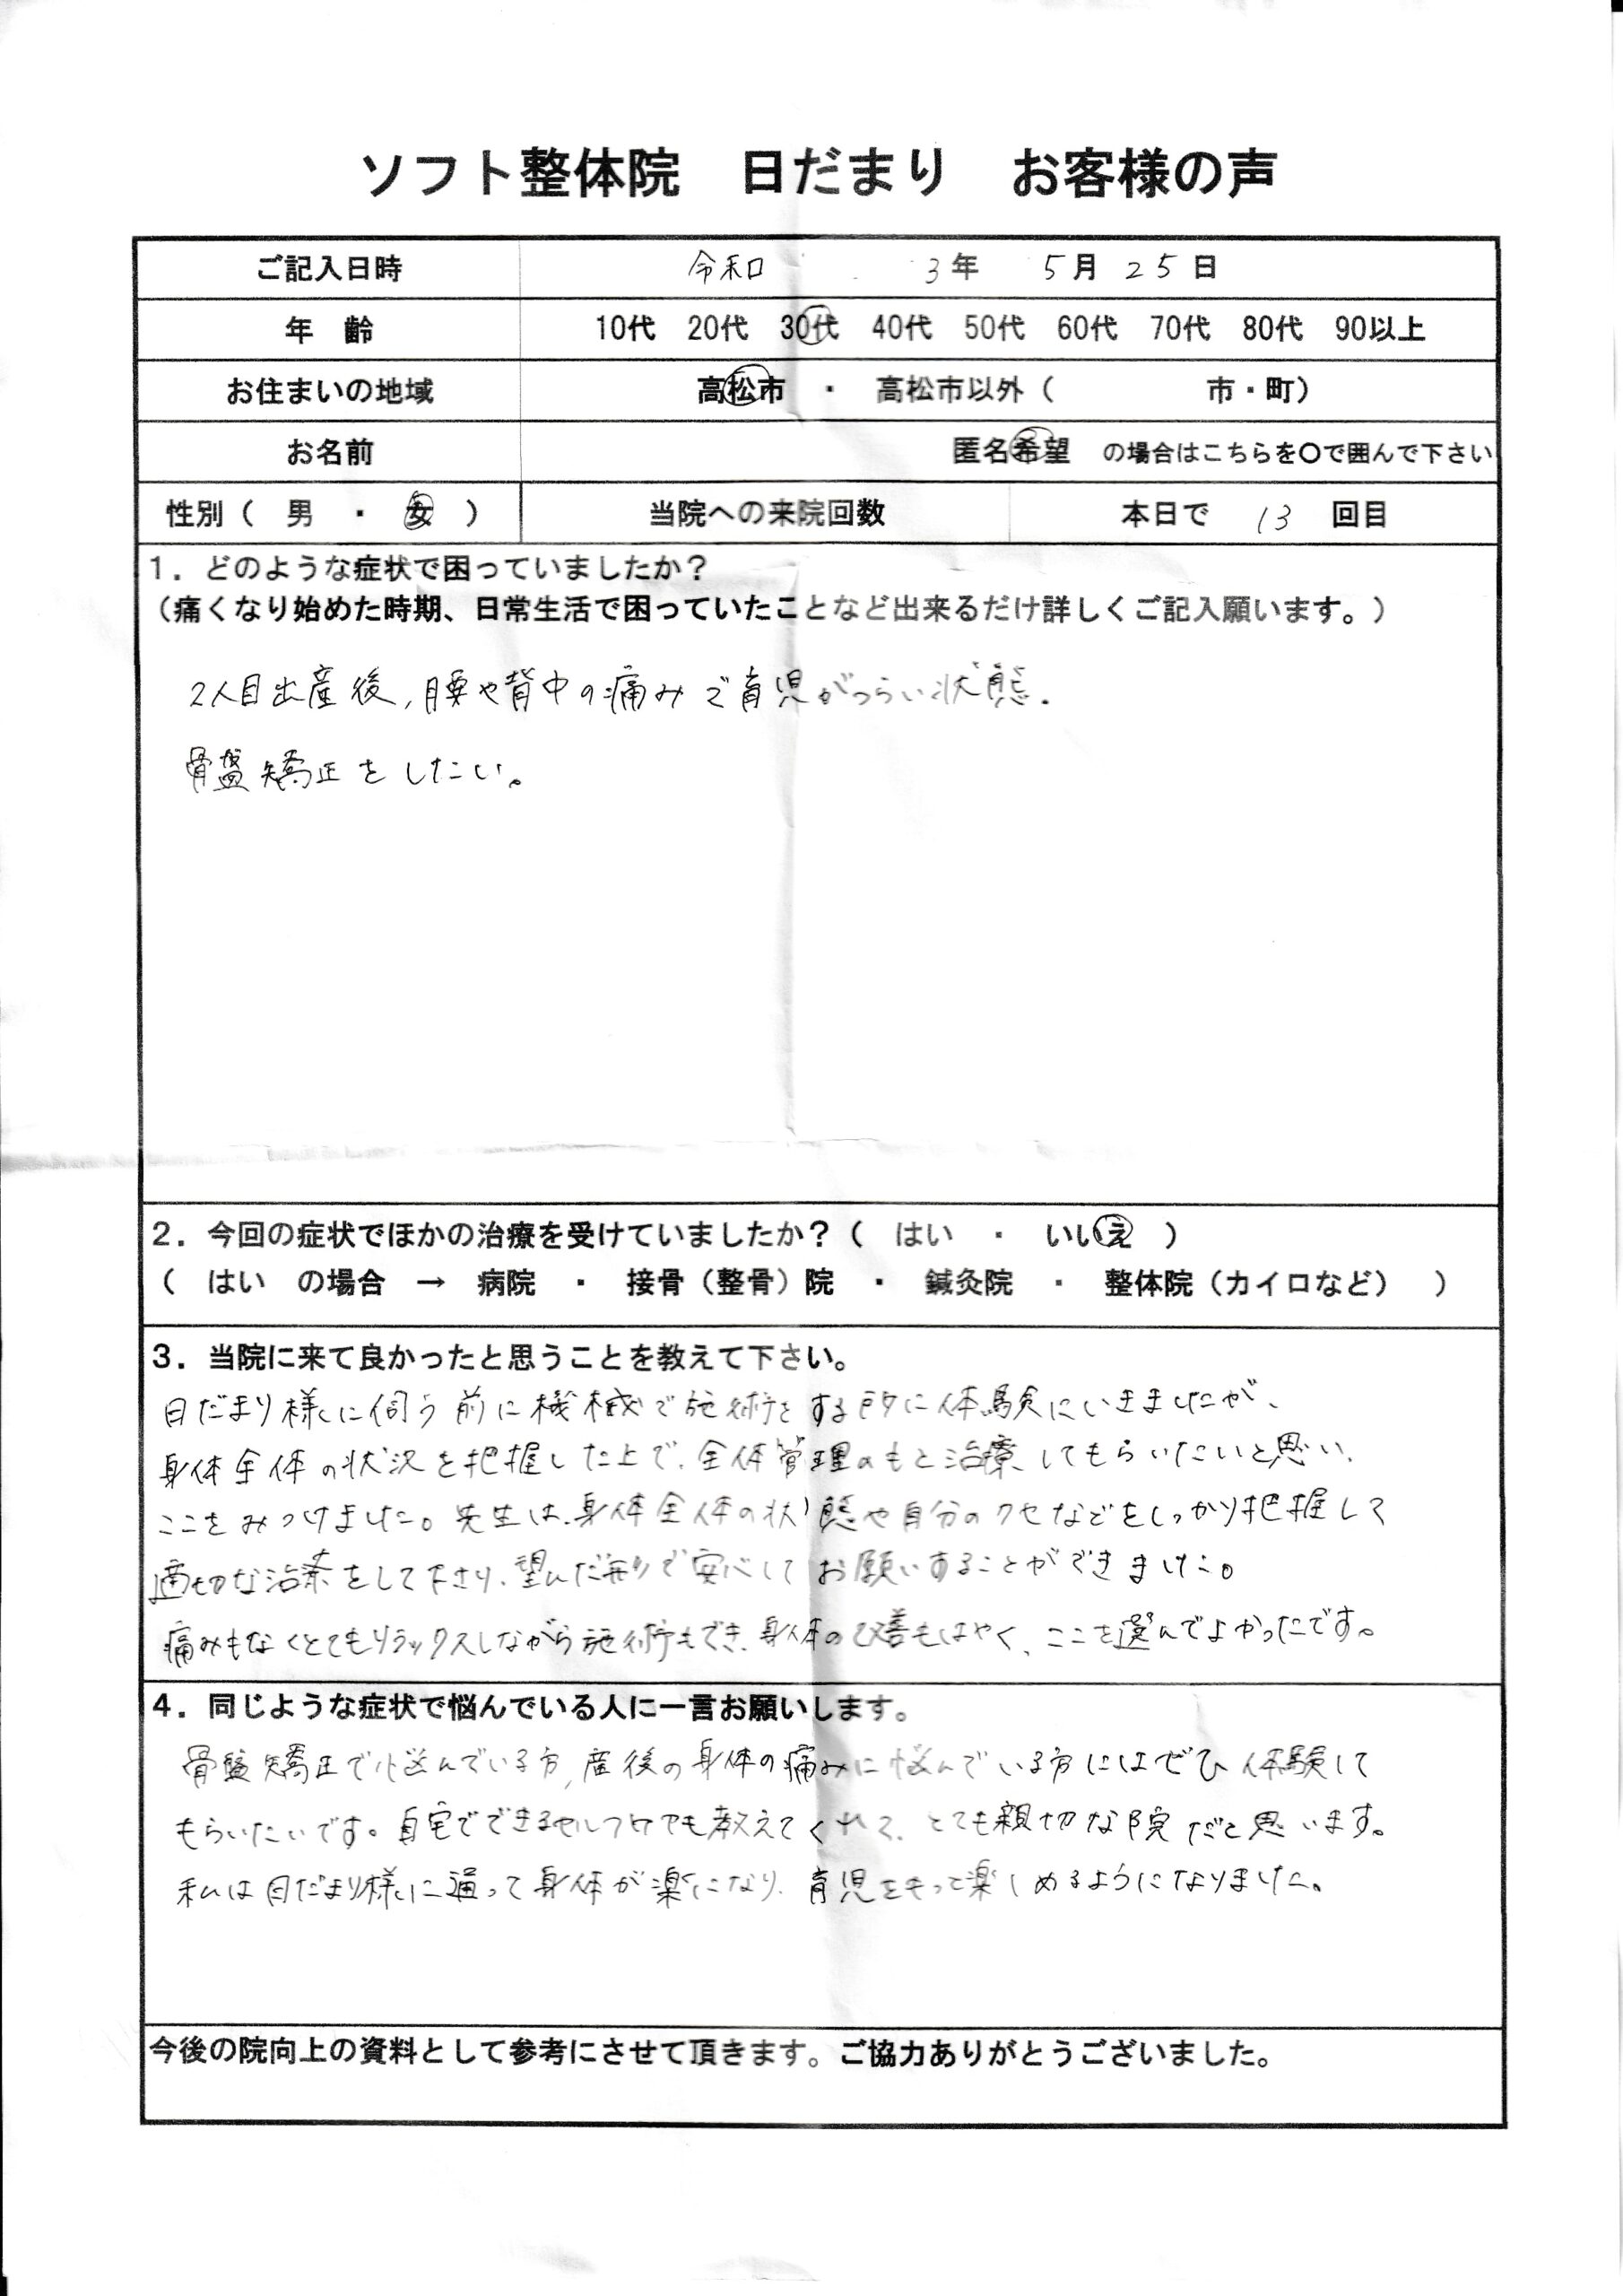 ソフト整体院　日だまり　お客様の声
ご記入日時　令和　3年　5月25日
年　齢　10代　20代　30代　40代　50代　60代　70代　80代　90以上
お住まいの地域　高松市　・　高松市以外（　　　　　市・町）
お名前　匿名希望　の場合はこちらを〇で囲んで下さい
性別（　男　・　女　）　当院への来院回数　本日で　13　回目
1．どのような症状で困っていましたか？
（痛くなり始めた時期、日常生活で困っていたことなど出来るだけ詳しくご記入願います。）
2人目出産後,腰や背中の痛みで育児がつらい状態.
骨盤矯正をしたい。
2．今回の症状でほかの治療を受けていましたか？（　はい　・　いいえ　）
（　はい　の場合　→　病院　・　接骨（整骨）院　・　鍼灸院　・　整体院（カイロなど）　）
3．当院に来て良かったと思うことを教えて下さい。
日だまり様に伺う前に機械で施術をする所に体験にいきましたが、
身体全体の状況を把握した上で、全体管理のもと治療してもらいたいと思い、
ここをみつけました。先生は、身体全体の状態や自分のクセなどをしっかり把握して
適切な治療をして下さり、望んだ形で安心してお願いすることができました。
痛みもなくとてもリラックスしながら施術もでき、身体の改善もはやく、ここを選んでよかったです。
4．同じような症状で悩んでいる人に一言お願いします。
骨盤矯正で悩んでいる方,産後の身体の痛みに悩んでいる方にはぜひ体験して
もらいたいです。自宅でできるセルフケアも教えてくれて、とても親切な院だと思います。
私は日だまり様に通って身体が楽になり、育児をもっと楽しめるようになりました。
今後の院向上の資料として参考にさせて頂きます。ご協力ありがとうございました。